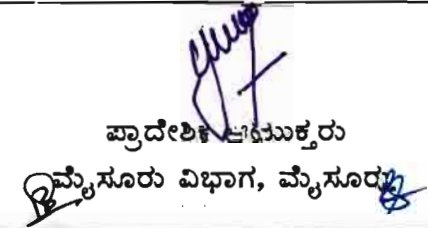 ಪ್ರಾದೇಶಿಕ ಆಯುಕ್ತರು
ಮೈಸೂರು ವಿಭಾಗ, ಮೈಸೂರು